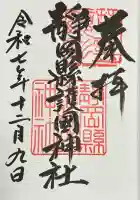 奉拝
静岡縣護國神社
令和七年十二月九日